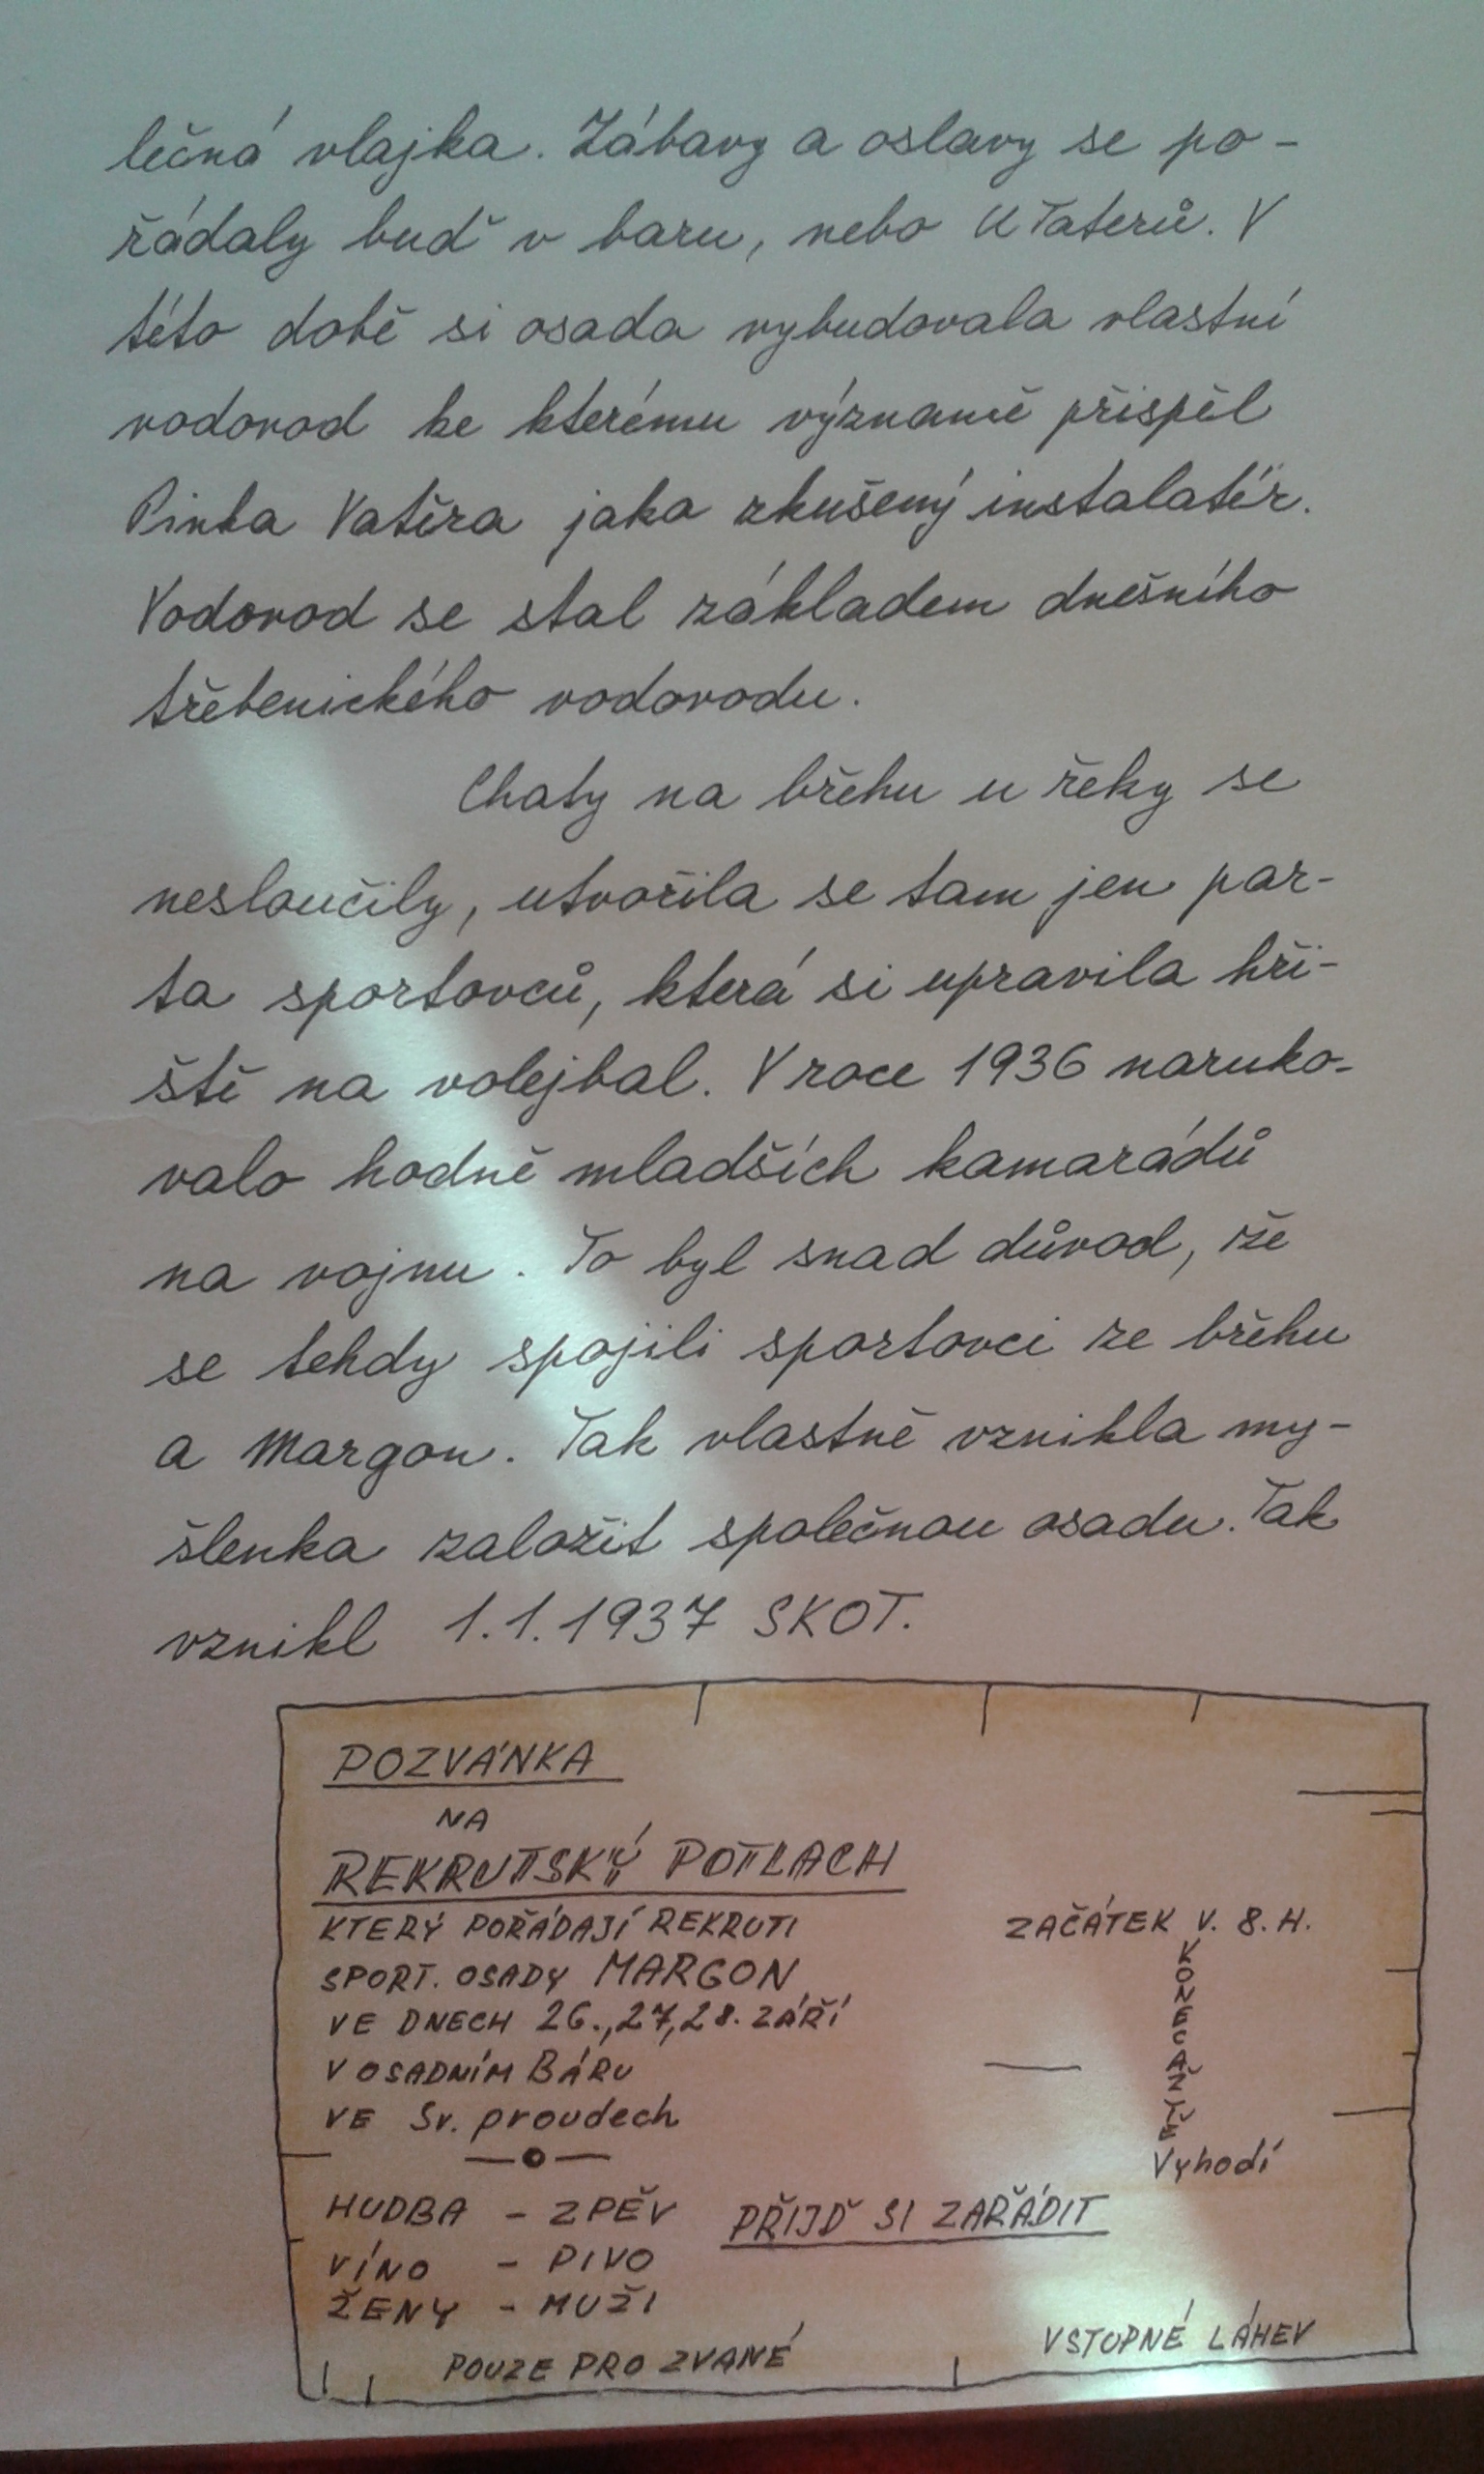 lečná vlajka. Zábavy a oslavy se po-
řádaly buď v baru, nebo U Taterů. V
této době si osada vybudovala vlastní
vodovod ke kterému význameě přispěl
Pinta Vatěra jako zkušený instalatér.
Vodovod se stal základem dnešního
třebenického vodovodu.
Chaty na břehu u řeky se
nesloučily, utvořila se tam jen par-
ta sportovců, která si upravila hři-
ště na volejbal. V roce 1936 naruko-
valo hodně mladších kamarádů
na vojnu. To byl snad důvod, že
se tehdy spojili sportovci ze břehu
a Margon. Tak vlastně vznikla my-
šlenka založit společnou osadu. Tak
vznikl 1.1.1937 SKOT.
POZVÁNKA
NA
REKRUTSKÝ POTLACH
KTERÝ POŘÁDAJÍ REKRUTI
SPORT. OSADY MARGON
VE DNECH 26.,27,28. ZÁŘÍ
V OSADNÍM BÁRU
VE Sv. proudech
ZAČÁTEK V. 8. H.
KONEC AŽ TĚ
Vyhodí
HUDBA - ZPĚV
VÍNO - PIVO
ŽENY - MUŽI
PŘIJĎ SI ZAŘÁDIT
POUZE PRO ZVANÉ
VSTUPNÉ LÁHEV